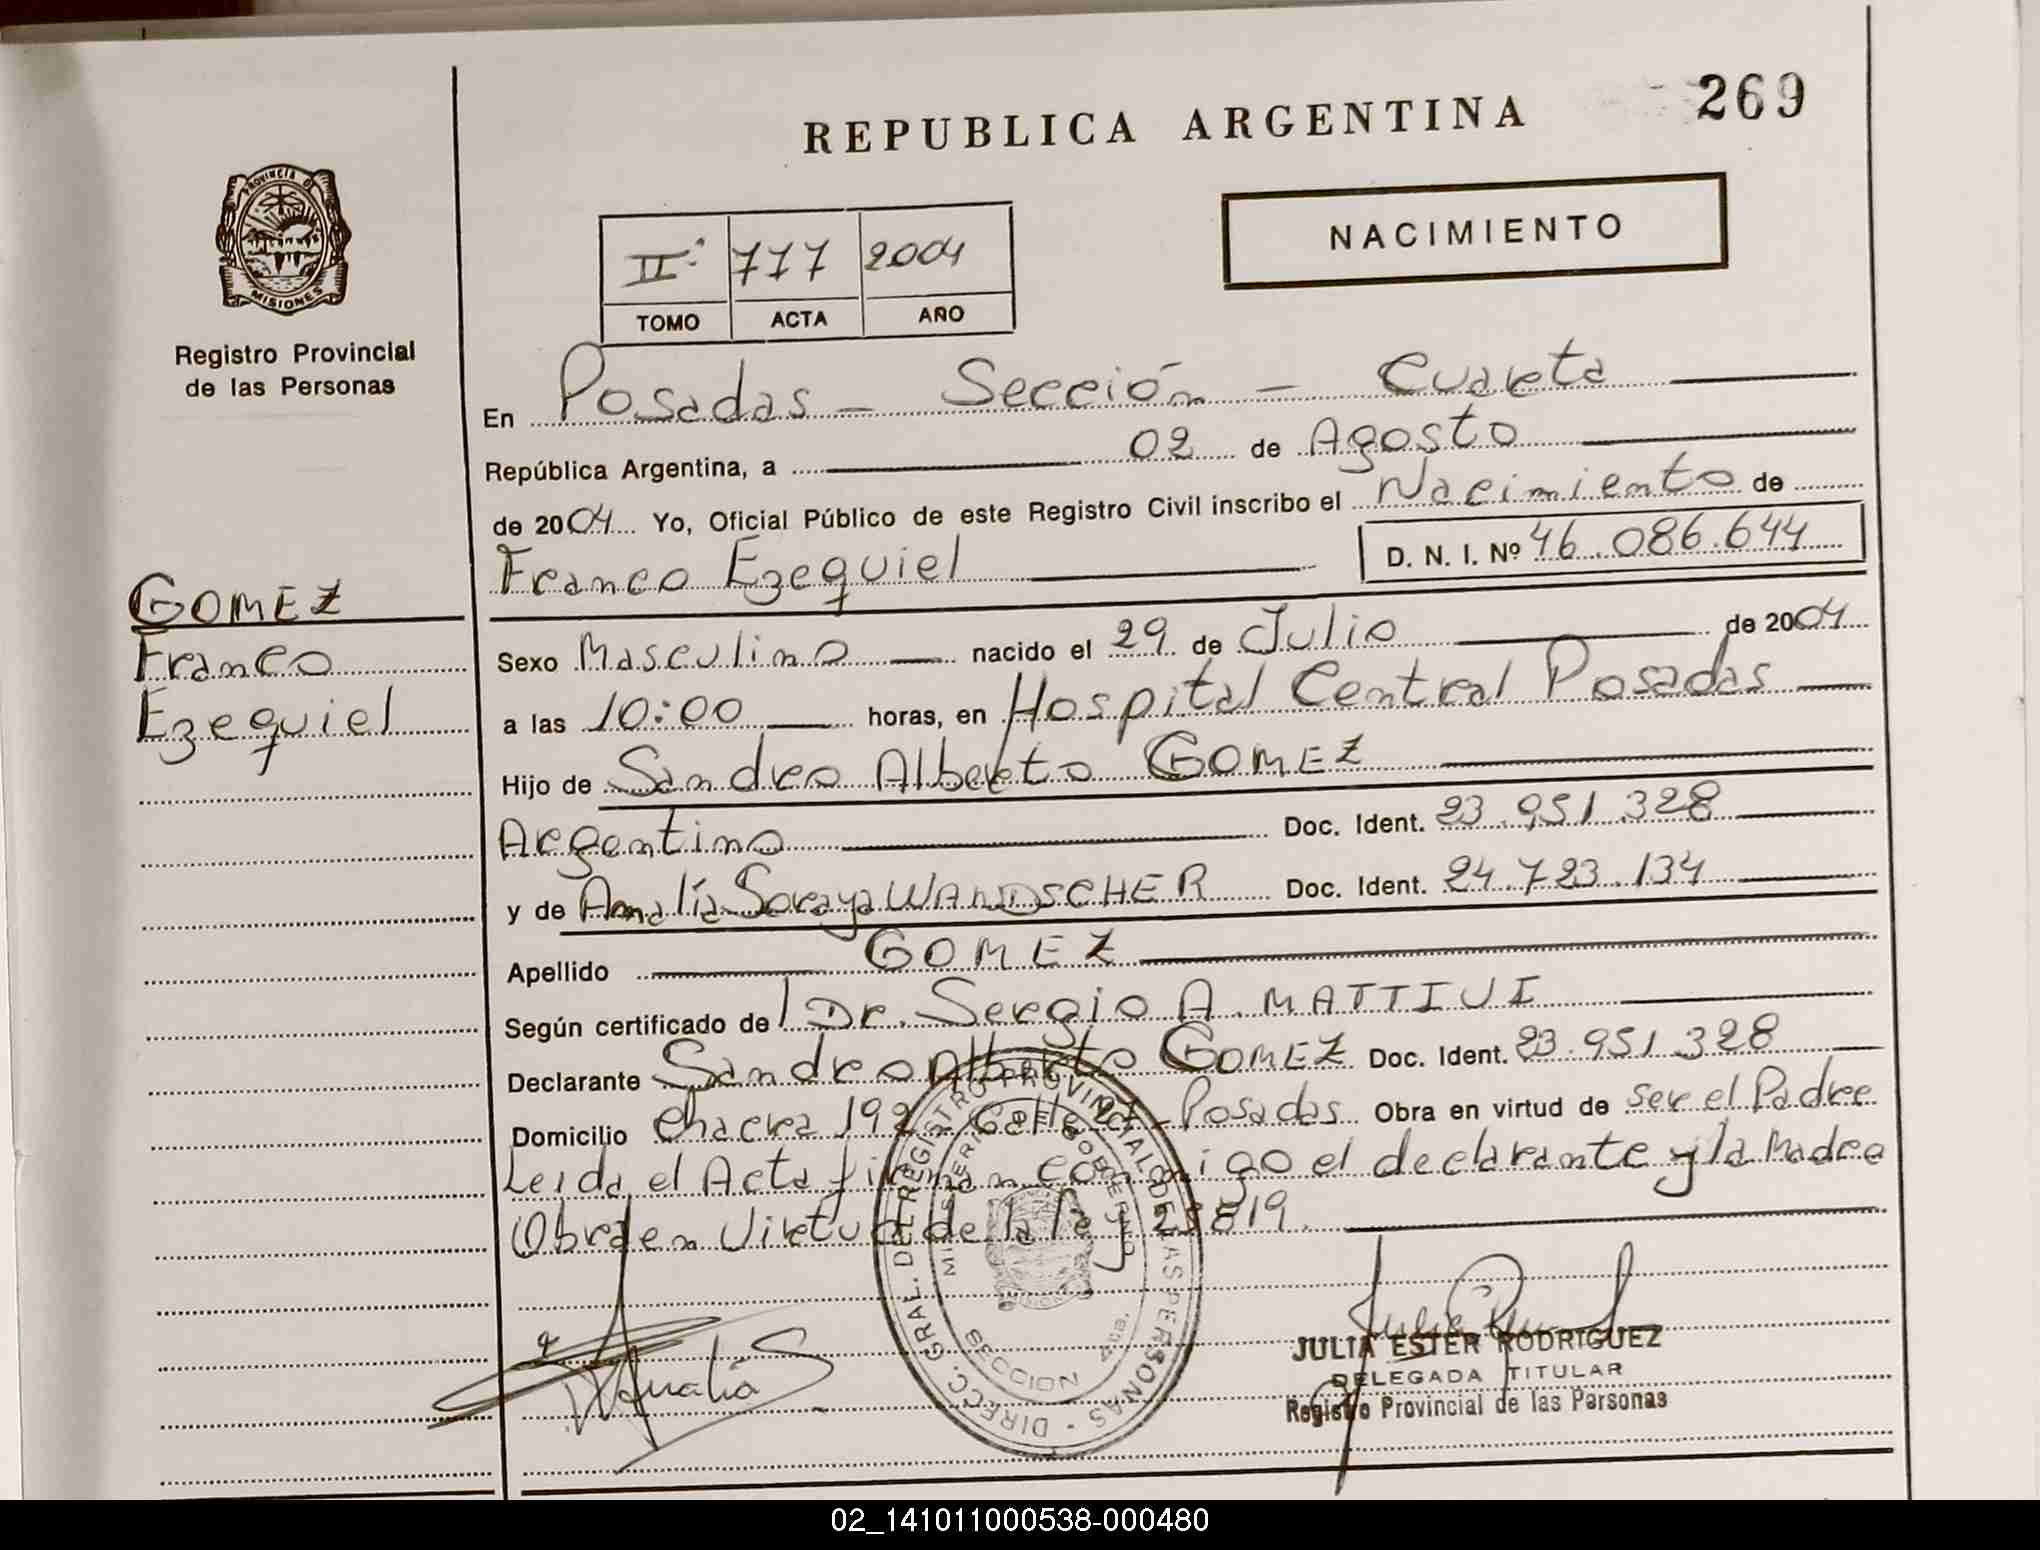 269
REPUBLICA ARGENTINA
NACIMIENTO
PROVINCIA DE
MISIONES
Registro Provincial
de las Personas
II° 777 2004
TOMO ACTA AÑO
En Posadas - Sección - Cuarta
República Argentina, a 02 de Agosto
de 2004 Yo, Oficial Público de este Registro Civil inscribo el Nacimiento de
Franco Ezequiel D. N. I. Nº 46.086.644
GOMEZ
Franco
Ezequiel
Sexo Masculino nacido el 29 de Julio de 2004
a las 10:00 horas, en Hospital Central Posadas
Hijo de Sandro Alberto GOMEZ
Argentino Doc. Ident. 23.951.328
y de Amalia Soraya WANDSCHER Doc. Ident. 24.723.134
Apellido GOMEZ
Según certificado de Dr. Sergio A. MATTIUI
Declarante Sandro Alberto GOMEZ Doc. Ident. 23.951.328
Domicilio Chacra 192 Calle 27 - Posadas Obra en virtud de ser el Padre
Leida el Acta firman conmigo el declarante y la Madre
Obra en Virtud de la ley 23819.
DIRECC. GRAL. DEL REGISTRO PROVINCIAL DE LAS PERSONAS
MINISTERIO DE GOBIERNO
SECCION 4ta.
Amalia S
JULIA ESTER RODRIGUEZ
DELEGADA TITULAR
Registro Provincial de las Personas
02_141011000538-000480